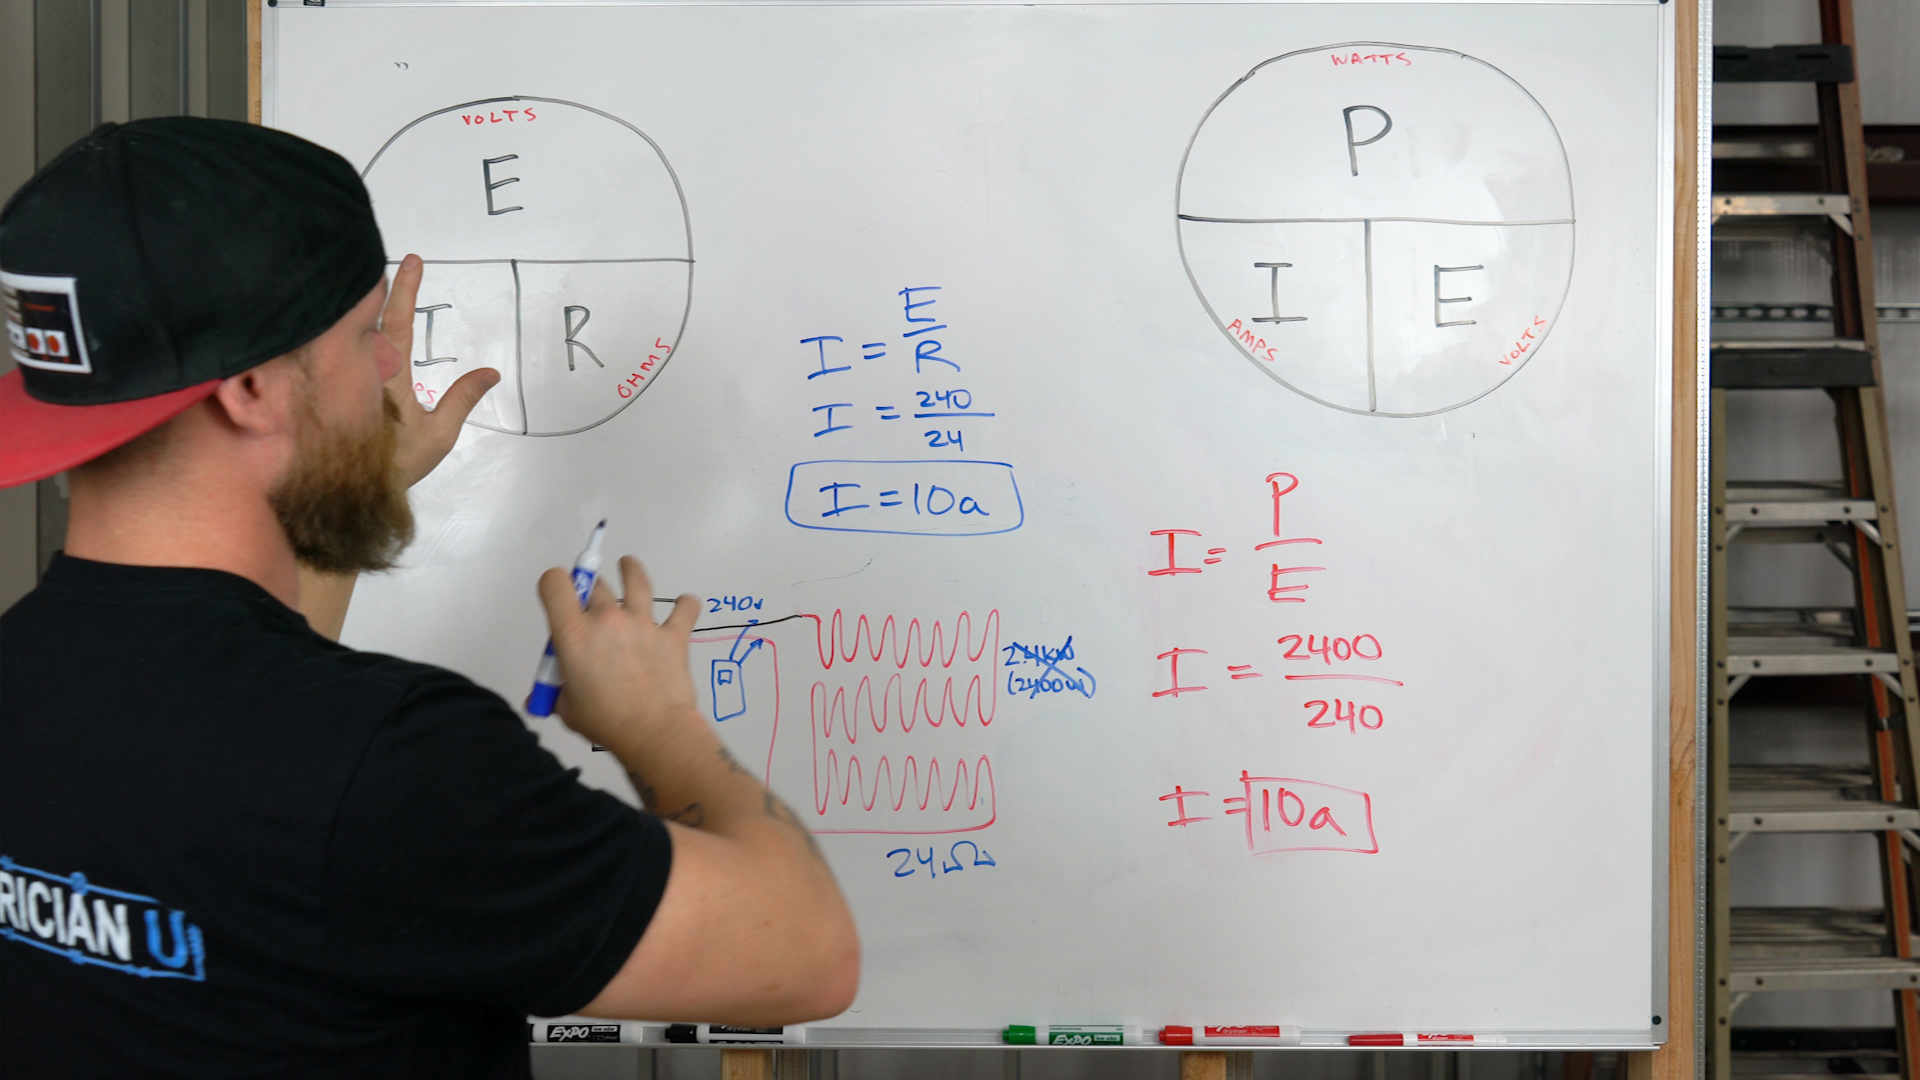 VOLTS
E
I
R
PS
OHMS
I = E/R
I = 240/24
I = 10a
240v
2.4KW
(2400W)
24Ω
WATTS
P
I
E
AMPS
VOLTS
I = P/E
I = 2400/240
I = 10a
RICIAN U
EXPO
EXPO
EXPO